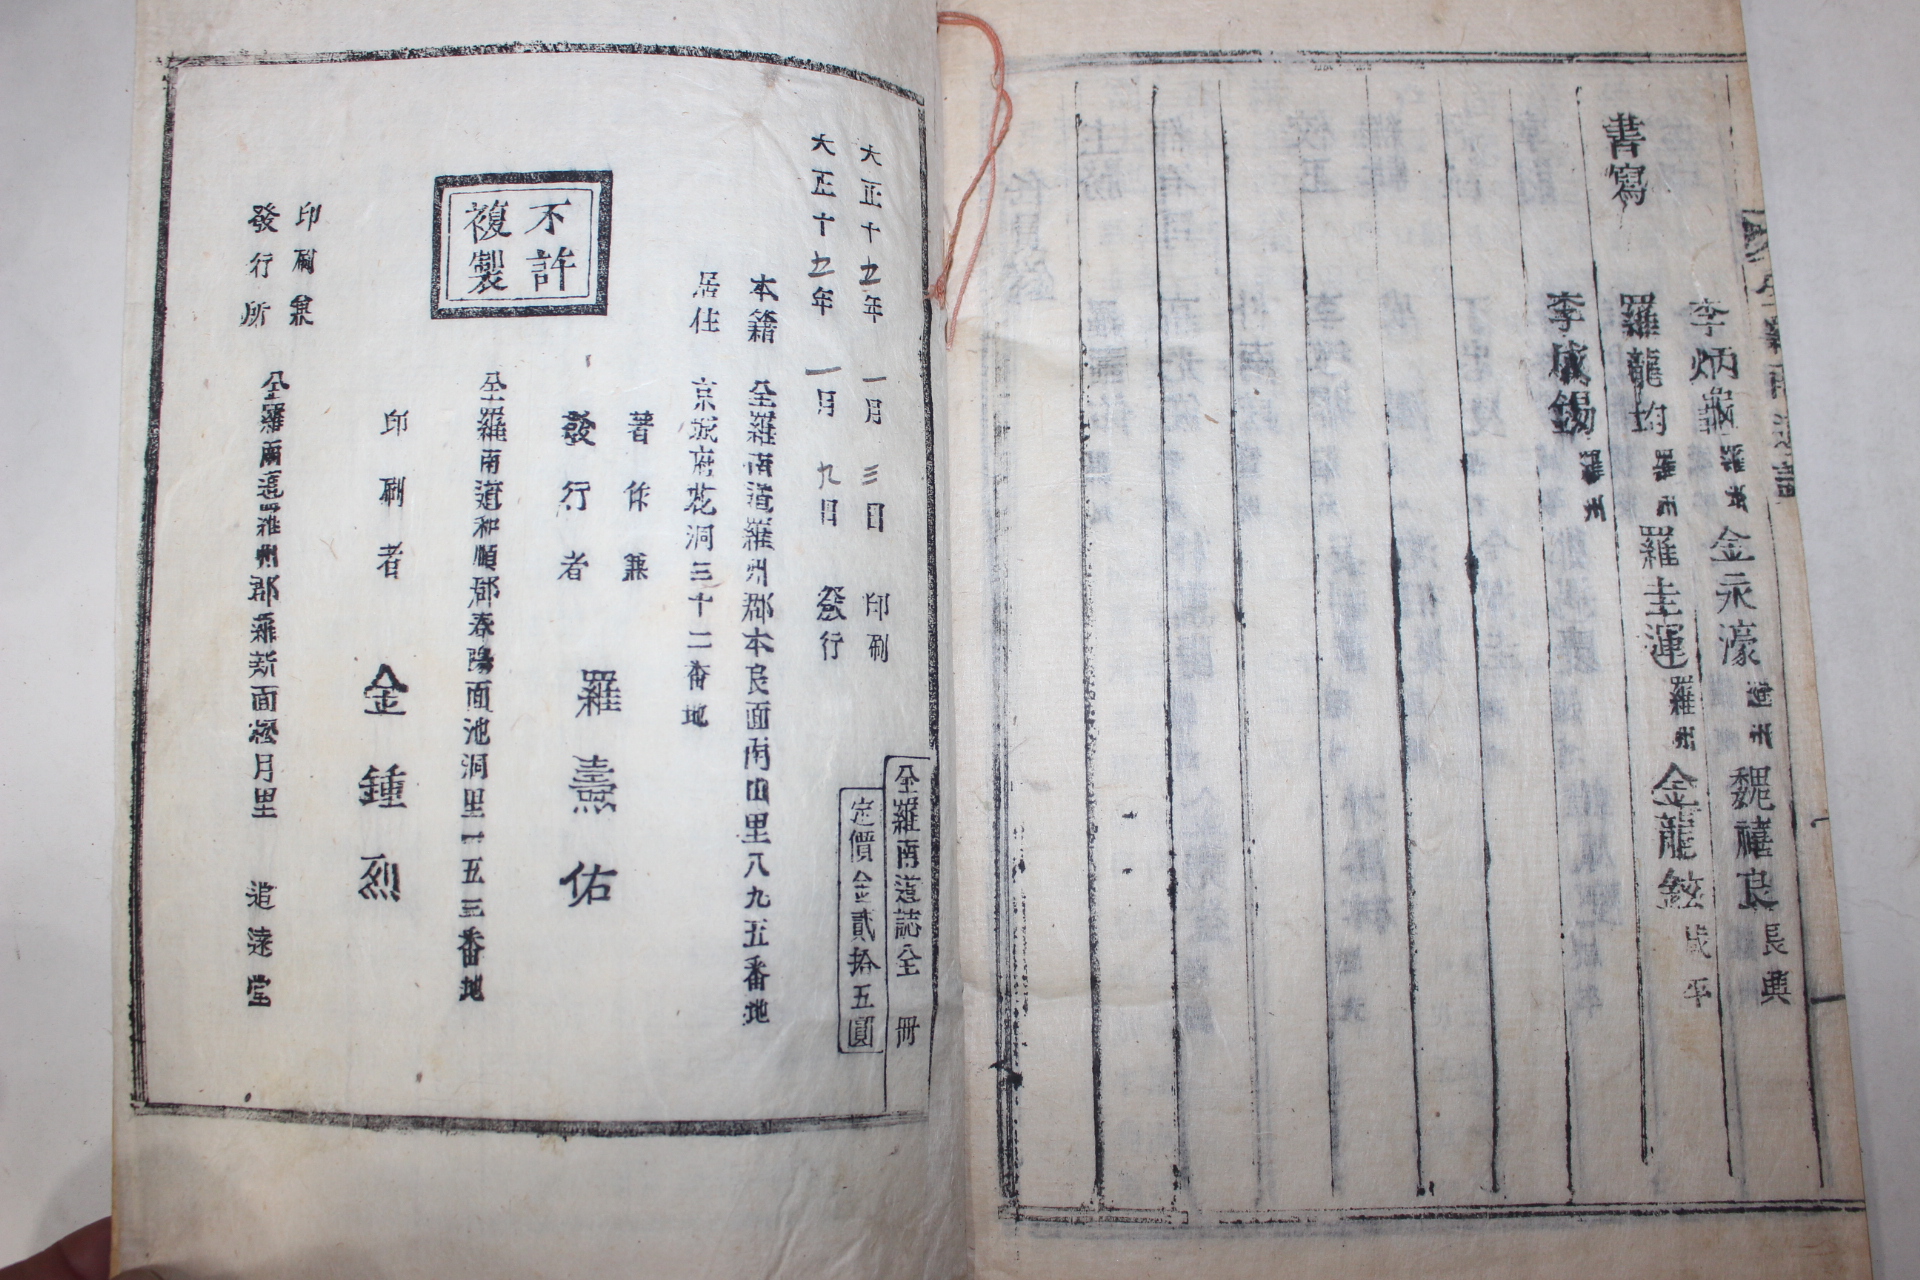 李炳龜 羅州 金永濠 光州 魏禧良 長興
書寫 羅龍均 羅州 羅圭運 羅州 金龍鉉 咸平
李成錫 羅州
大正十五年 一月 三日 印刷
大正十五年 一月 九日 發行
全羅南道誌全 冊
定價金貳拾五圓
本籍 全羅南道羅州郡本良面南山里八九五番地
居住 京城府花洞三十二番地
著作兼
發行者 羅燾佑
不許
複製
全羅南道和順郡春陽面池洞里一五三番地
印刷者 金鍾烈
印刷兼
發行所 全羅南道羅州郡羅新面松月里 追遠堂